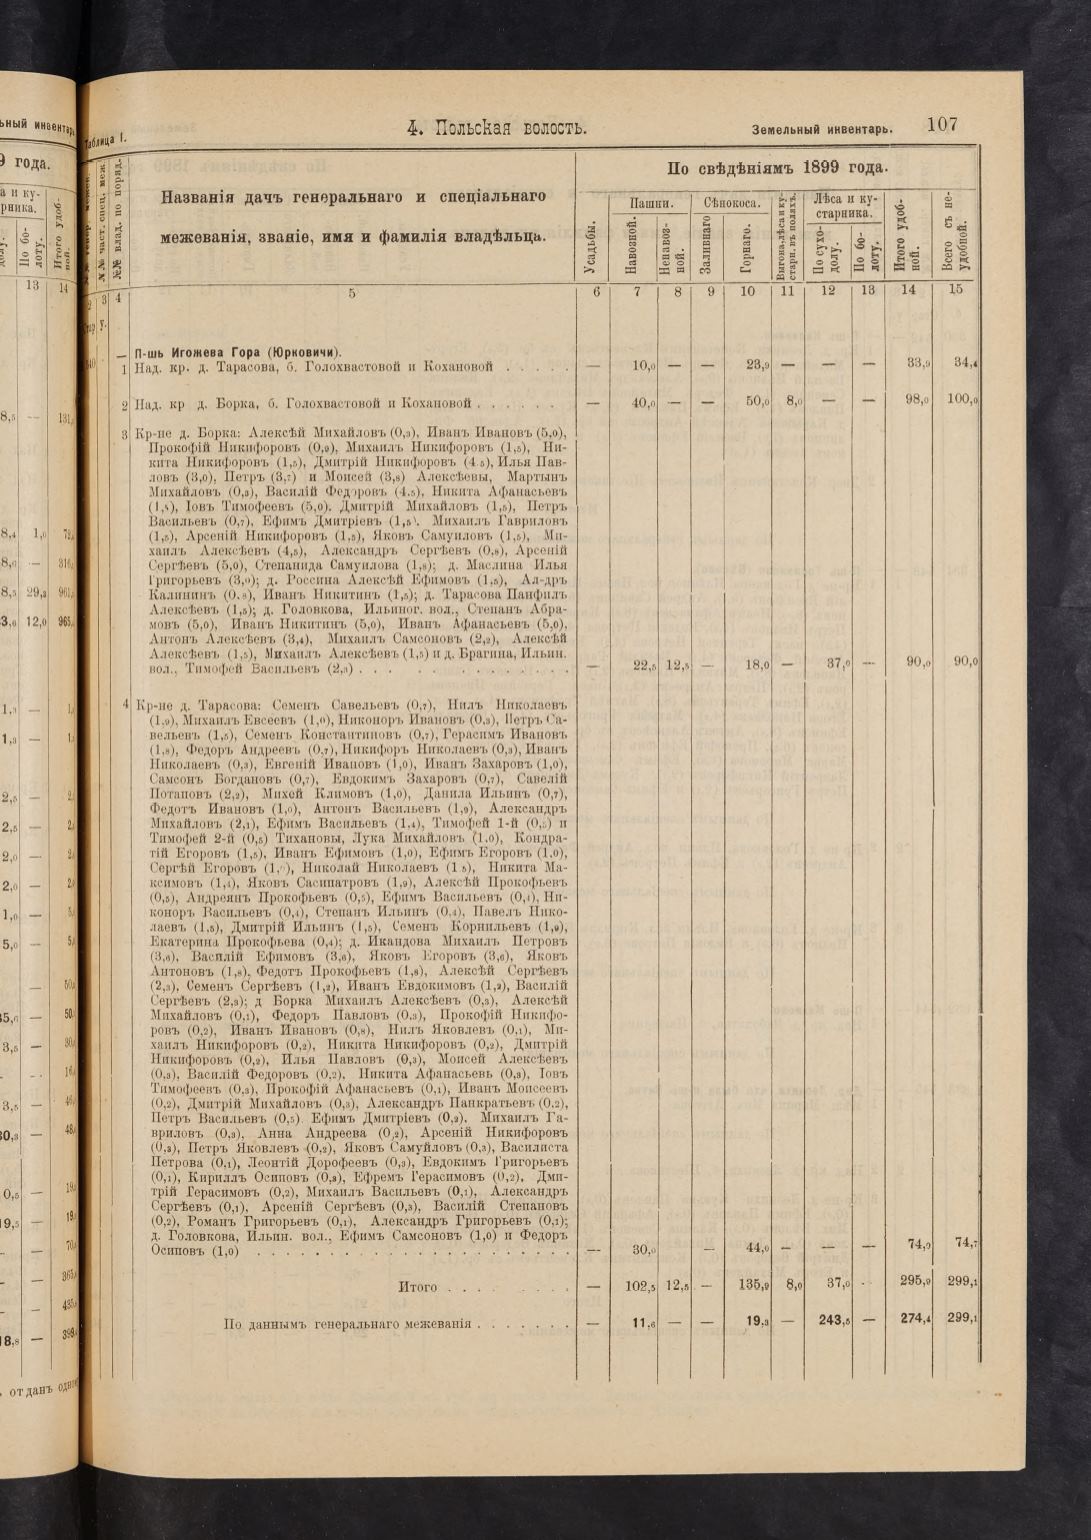 Таблица I.
4. Польская волость.
Земельный инвентарь. 107
Названія дачъ генеральнаго и спеціальнаго
межеванія, званіе, имя и фамилія владѣльца.
По свѣдѣніямъ 1899 года.
Усадьбы.
Пашни.
Навозной.
Ненавоз-
ной.
Сѣнокоса.
Заливнаго
Горнаго.
Выгона, лѣса и ку-
старн. въ поляхъ.
Лѣса и ку-
старника.
По сухо-
долу.
По бо-
лоту.
Итого удоб-
ной.
Всего съ не-
удобной.
2 3 4 5 6 7 8 9 10 11 12 13 14 15
— П-шь Игожева Гора (Юрковичи).
1 Над. кр. д. Тарасова, б. Голохвастовой и Кохановой . . . . . — 10,0 — — 23,9 — — — 33,9 34,4
2 Над. кр д. Борка, б. Голохвастовой и Кохановой . . . . . . — 40,0 — — 50,0 8,0 — — 98,0 100,0
3 Кр-не д. Борка: Алексѣй Михайловъ (0,3), Иванъ Ивановъ (5,0),
Прокофій Никифоровъ (0,9), Михаилъ Никифоровъ (1,5), Ни-
кита Никифоровъ (1,5), Дмитрій Никифоровъ (4 5), Илья Пав-
ловъ (3,0), Петръ (3,7) и Моисей (3,8) Алексѣевы, Мартынъ
Михайловъ (0,3), Василій Федоровъ (4,5), Никита Афанасьевъ
(1,5), Іовъ Тимофеевъ (5,0), Дмитрій Михайловъ (1,5), Петръ
Васильевъ (0,7), Ефимъ Дмитріевъ (1,5), Михаилъ Гавриловъ
(1,5), Арсеній Никифоровъ (1,5), Яковъ Самуиловъ (1,5), Ми-
хаилъ Алексѣевъ (4,5), Александръ Сергѣевъ (0,8), Арсеній
Сергѣевъ (5,0), Степанида Самуилова (1,8); д. Маслина Илья
Григорьевъ (3,0); д. Россина Алексѣй Ефимовъ (1,5), Ал-дръ
Калининъ (0,8), Иванъ Никитинъ (1,5); д. Тарасова Панфилъ
Алексѣевъ (1,5); д. Головкова, Ильиног. вол., Степанъ Абра-
мовъ (5,0), Иванъ Никитинъ (5,0), Иванъ Афанасьевъ (5,0),
Антонъ Алексѣевъ (3,4), Михаилъ Самсоновъ (2,2), Алексѣй
Алексѣевъ (1,5), Михаилъ Алексѣевъ (1,5) и д. Брагина, Ильин.
вол., Тимофей Васильевъ (2,3) . . . . . . . . . . . . . — 22,5 12,5 — 18,0 — 37,0 — 90,0 90,0
4 Кр-не д. Тарасова: Семенъ Савельевъ (0,7), Нилъ Николаевъ
(1,9), Михаилъ Евсеевъ (1,0), Никоноръ Ивановъ (0,3), Петръ Са-
вельевъ (1,5), Семенъ Константиновъ (0,7), Герасимъ Ивановъ
(1,8), Федоръ Андреевъ (0,7), Никифоръ Николаевъ (0,3), Иванъ
Николаевъ (0,3), Евгеній Ивановъ (1,0), Иванъ Захаровъ (1,0),
Самсонъ Богдановъ (0,7), Евдокимъ Захаровъ (0,7), Савелій
Потаповъ (2,2), Михей Климовъ (1,0), Данила Ильинъ (0,7),
Федотъ Ивановъ (1,0), Антонъ Васильевъ (1,9), Александръ
Михайловъ (2,1), Ефимъ Васильевъ (1,4), Тимофей 1-й (0,5) и
Тимофей 2-й (0,5) Тихановы, Лука Михайловъ (1,0), Кондра-
тій Егоровъ (1,5), Иванъ Ефимовъ (1,0), Ефимъ Егоровъ (1,0),
Сергѣй Егоровъ, Николай Николаевъ (1 5), Никита Ма-
ксимовъ (1,4), Яковъ Сасипатровъ (1,9), Алексѣй Прокофьевъ
(0,5), Андреянъ Прокофьевъ (0,5), Ефимъ Васильевъ (0,4), Ни-
коноръ Васильевъ (0,4), Степанъ Ильинъ (0,4), Павелъ Нико-
лаевъ (1,5), Дмитрій Ильинъ (1,5), Семенъ Корнильевъ (1,9),
Екатерина Прокофьева (0,4); д. Икандова Михаилъ Петровъ
(3,6), Василій Ефимовъ (3,6), Яковъ Егоровъ (3,6), Яковъ
Антоновъ (1,8), Федотъ Прокофьевъ (1,8), Алексѣй Сергѣевъ
(2,3), Семенъ Сергѣевъ (1,2), Иванъ Евдокимовъ (1,2), Василій
Сергѣевъ (2,3); д Борка Михаилъ Алексѣевъ (0,3), Алексѣй
Михайловъ (0,1), Федоръ Павловъ (0,3), Прокофій Никифо-
ровъ (0,2), Иванъ Ивановъ (0,8), Нилъ Яковлевъ (0,1), Ми-
хаилъ Никифоровъ (0,2), Никита Никифоровъ (0,2), Дмитрій
Никифоровъ (0,2), Илья Павловъ (0,3), Моисей Алексѣевъ
(0,3), Василій Федоровъ (0,2), Никита Афанасьевъ (0,3), Іовъ
Тимофеевъ (0,3), Прокофій Афанасьевъ (0,1), Иванъ Моисеевъ
(0,2), Дмитрій Михайловъ (0,3), Александръ Панкратьевъ (0,2),
Петръ Васильевъ (0,5) Ефимъ Дмитріевъ (0,3), Михаилъ Га-
вриловъ (0,3), Анна Андреева (0,2), Арсеній Никифоровъ
(0,3), Петръ Яковлевъ (0,2), Яковъ Самуйловъ (0,3), Василиста
Петрова (0,1), Леонтій Дорофеевъ (0,3), Евдокимъ Григорьевъ
(0,1), Кириллъ Осиповъ (0,3), Ефремъ Герасимовъ (0,2), Дми-
трій Герасимовъ (0,2), Михаилъ Васильевъ (0,1), Александръ
Сергѣевъ (0,1), Арсеній Сергѣевъ (0,3), Василій Степановъ
(0,2), Романъ Григорьевъ (0,1), Александръ Григорьевъ (0,1);
д. Головкова, Ильин. вол., Ефимъ Самсоновъ (1,0) и Федоръ
Осиповъ (1,0) . . . . . . . . . . . . . . . . . . . . — 30,0 — 44,0 — — — 74,0 74,7
Итого . . . . . . . . — 102,5 12,5 — 135,9 8,0 37,0 - 295,9 299,1
По даннымъ генеральнаго межеванія . . . . . . . — 11,6 — — 19,3 — 243,5 — 274,4 299,1